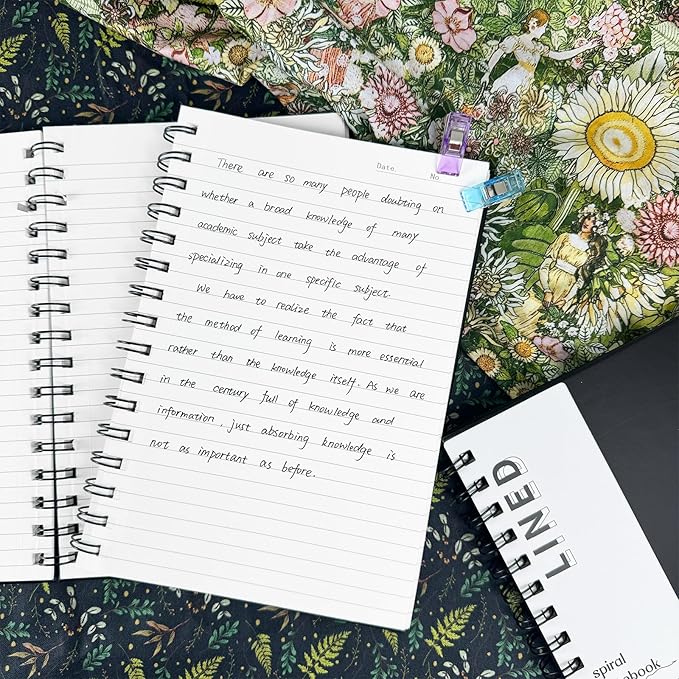 Date.
No
There are so many people doubting on
whether a broad knowledge of many
academic subject take the advantage of
specializing in one specific subject.
We have to realize the fact that
the method of learning is more essential
rather than the knowledge itself. As we are
in the century full of knowledge and
information, just absorbing knowledge is
not as important as before.
LINED
spiral